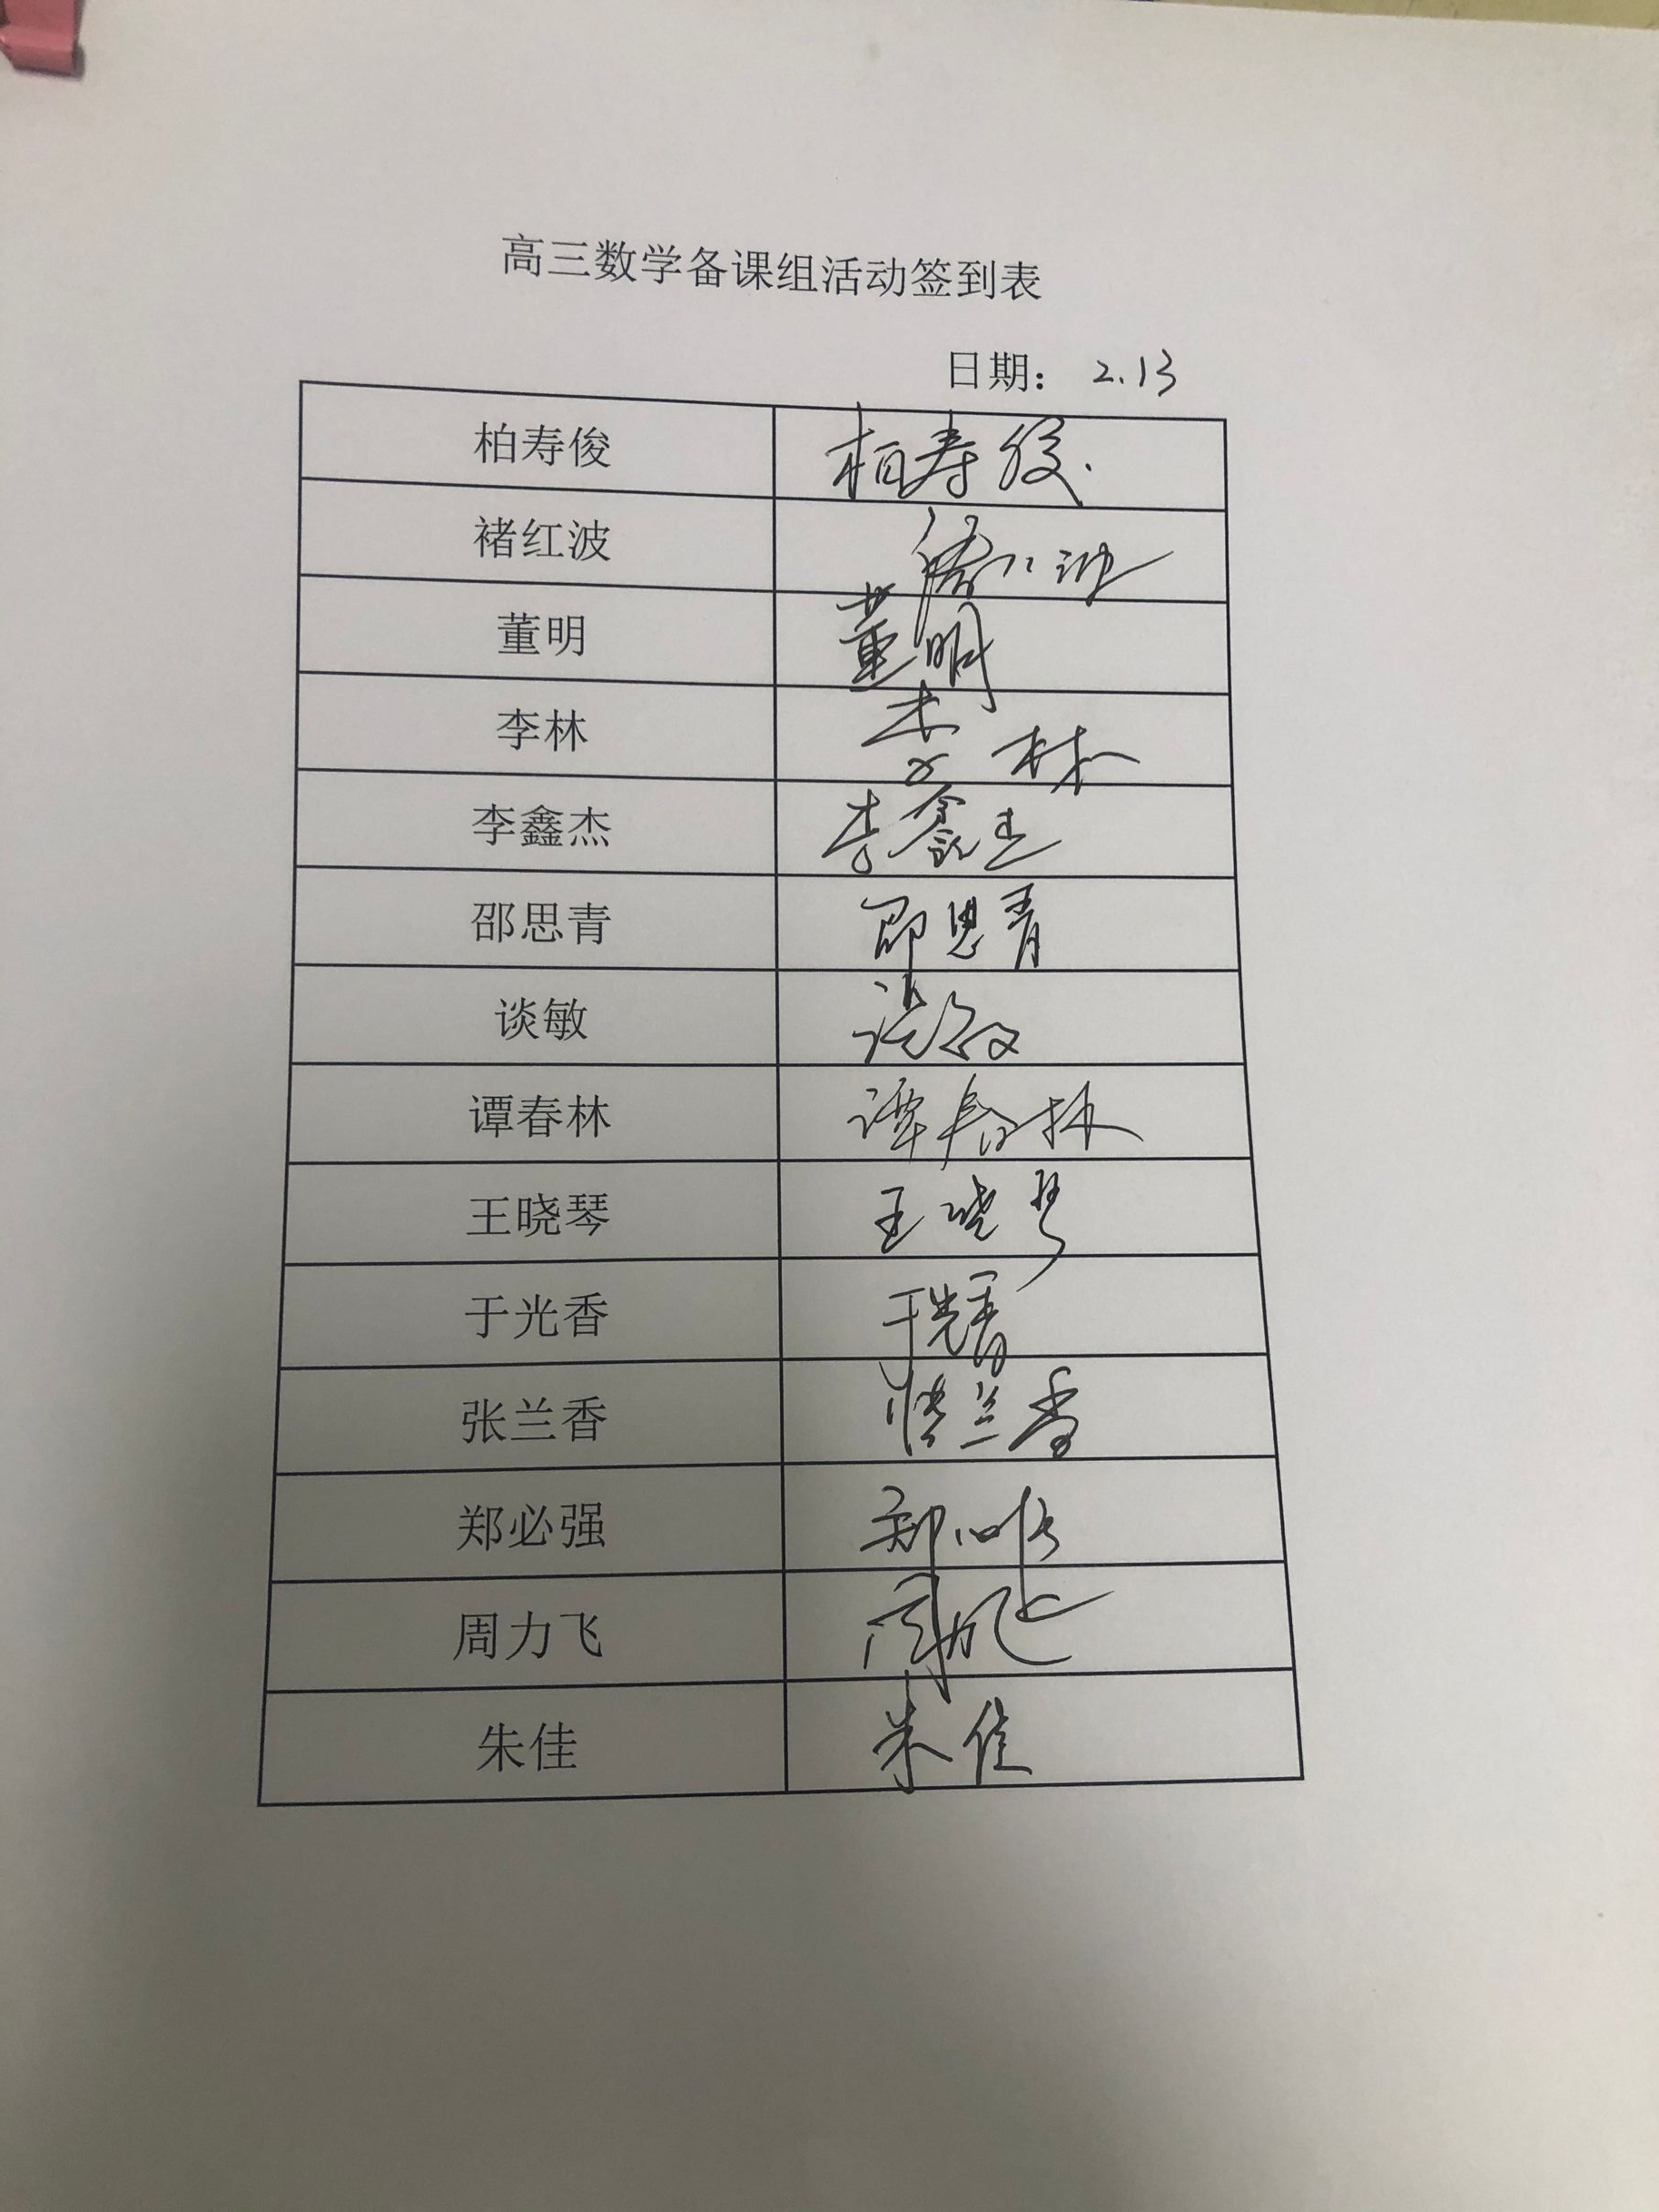 高三数学备课组活动签到表
日期： 2.13
柏寿俊 柏寿俊.
褚红波 褚红波
董明 董明
李林 李林
李鑫杰 李鑫杰
邵思青 邵思青
谈敏 谈敏
谭春林 谭春林
王晓琴 王晓琴
于光香 于光香
张兰香 张兰香
郑必强 郑必强
周力飞 周力飞
朱佳 朱佳